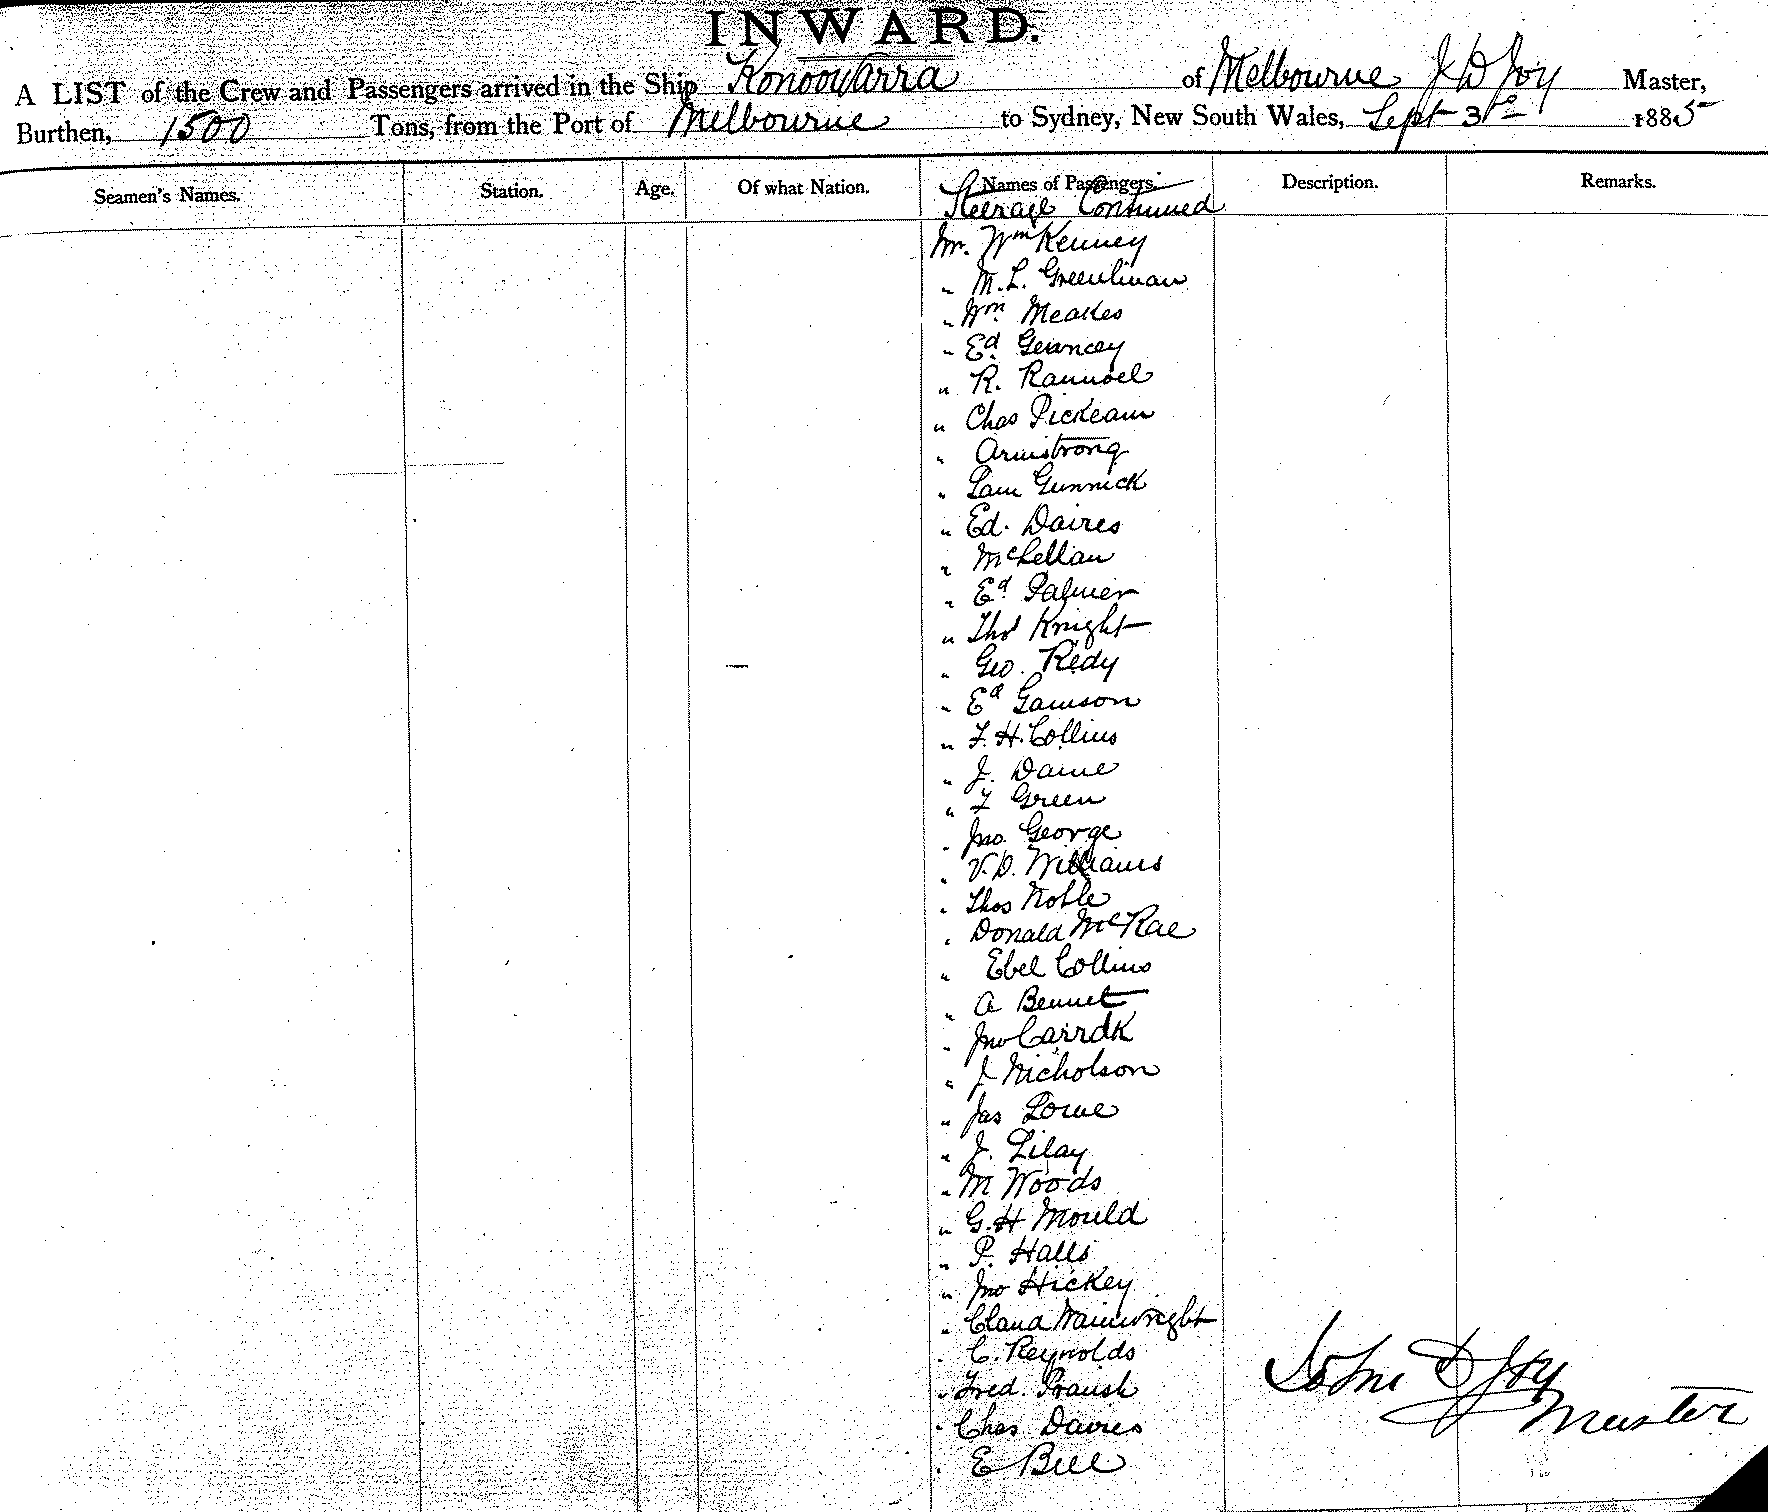 INWARD.
A LIST of the Crew and Passengers arrived in the Ship Konoowarra of Melbourne J D Joy Master,
Burthen, 1500 Tons, from the Port of Melbourne to Sydney, New South Wales, Sept 3rd 1885
Seamen's Names. Station. Age. Of what Nation. Names of Passengers. Description. Remarks.
Steerage Continued
Mr. Wm Kenney
" M. L.
" Wm Meakes
" Ed
" R.
" Chas Pickeam
" Armstrong
" Sam Gunnick
" Ed. Davies
" McLellan
" Ed. Palmer
" Thos Knight
" Geo. Redy
" Ed Gamson
" F. H. Collins
" J.
" F Green
" Jno. George
" V. D. Williams
" Thos Noble
" Donald McRae
" Ebel Collins
" A Bennet
" Jno
" J Nicholson
" Jas Lowe
" J. Lilay
" M Woods
" G. H Mould
" P. Halls
" Jno Hickey
" Claud Wainwright
" C. Reynolds
" Fred.
" Chas Davies
" E Bell
John D Joy
Master